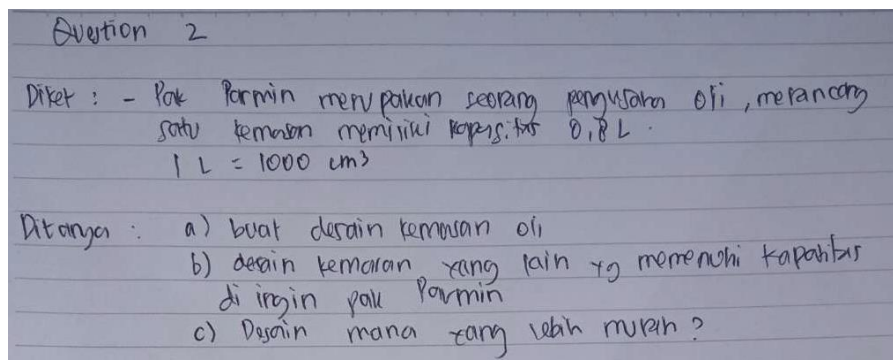 Question 2
Diket : - Pak Parmin merupakan seorang pengusaha oli, merancang
satu kemasan memiliki kapasitas 0,8 L.
1 L = 1000 cm3
Ditanya : a) buat desain kemasan oli
b) desain kemasan yang lain yg memenuhi kapasitas
di ingin pak Parmin
c) Desain mana yang lebih murah?